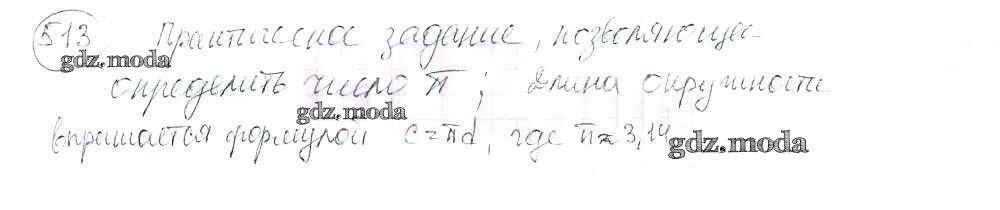 513 Практическое задание, позволяющее
gdz.moda
определить число π; Длина окружности
gdz.moda
выражается формулой c=πd, где π≈3,14
gdz.moda